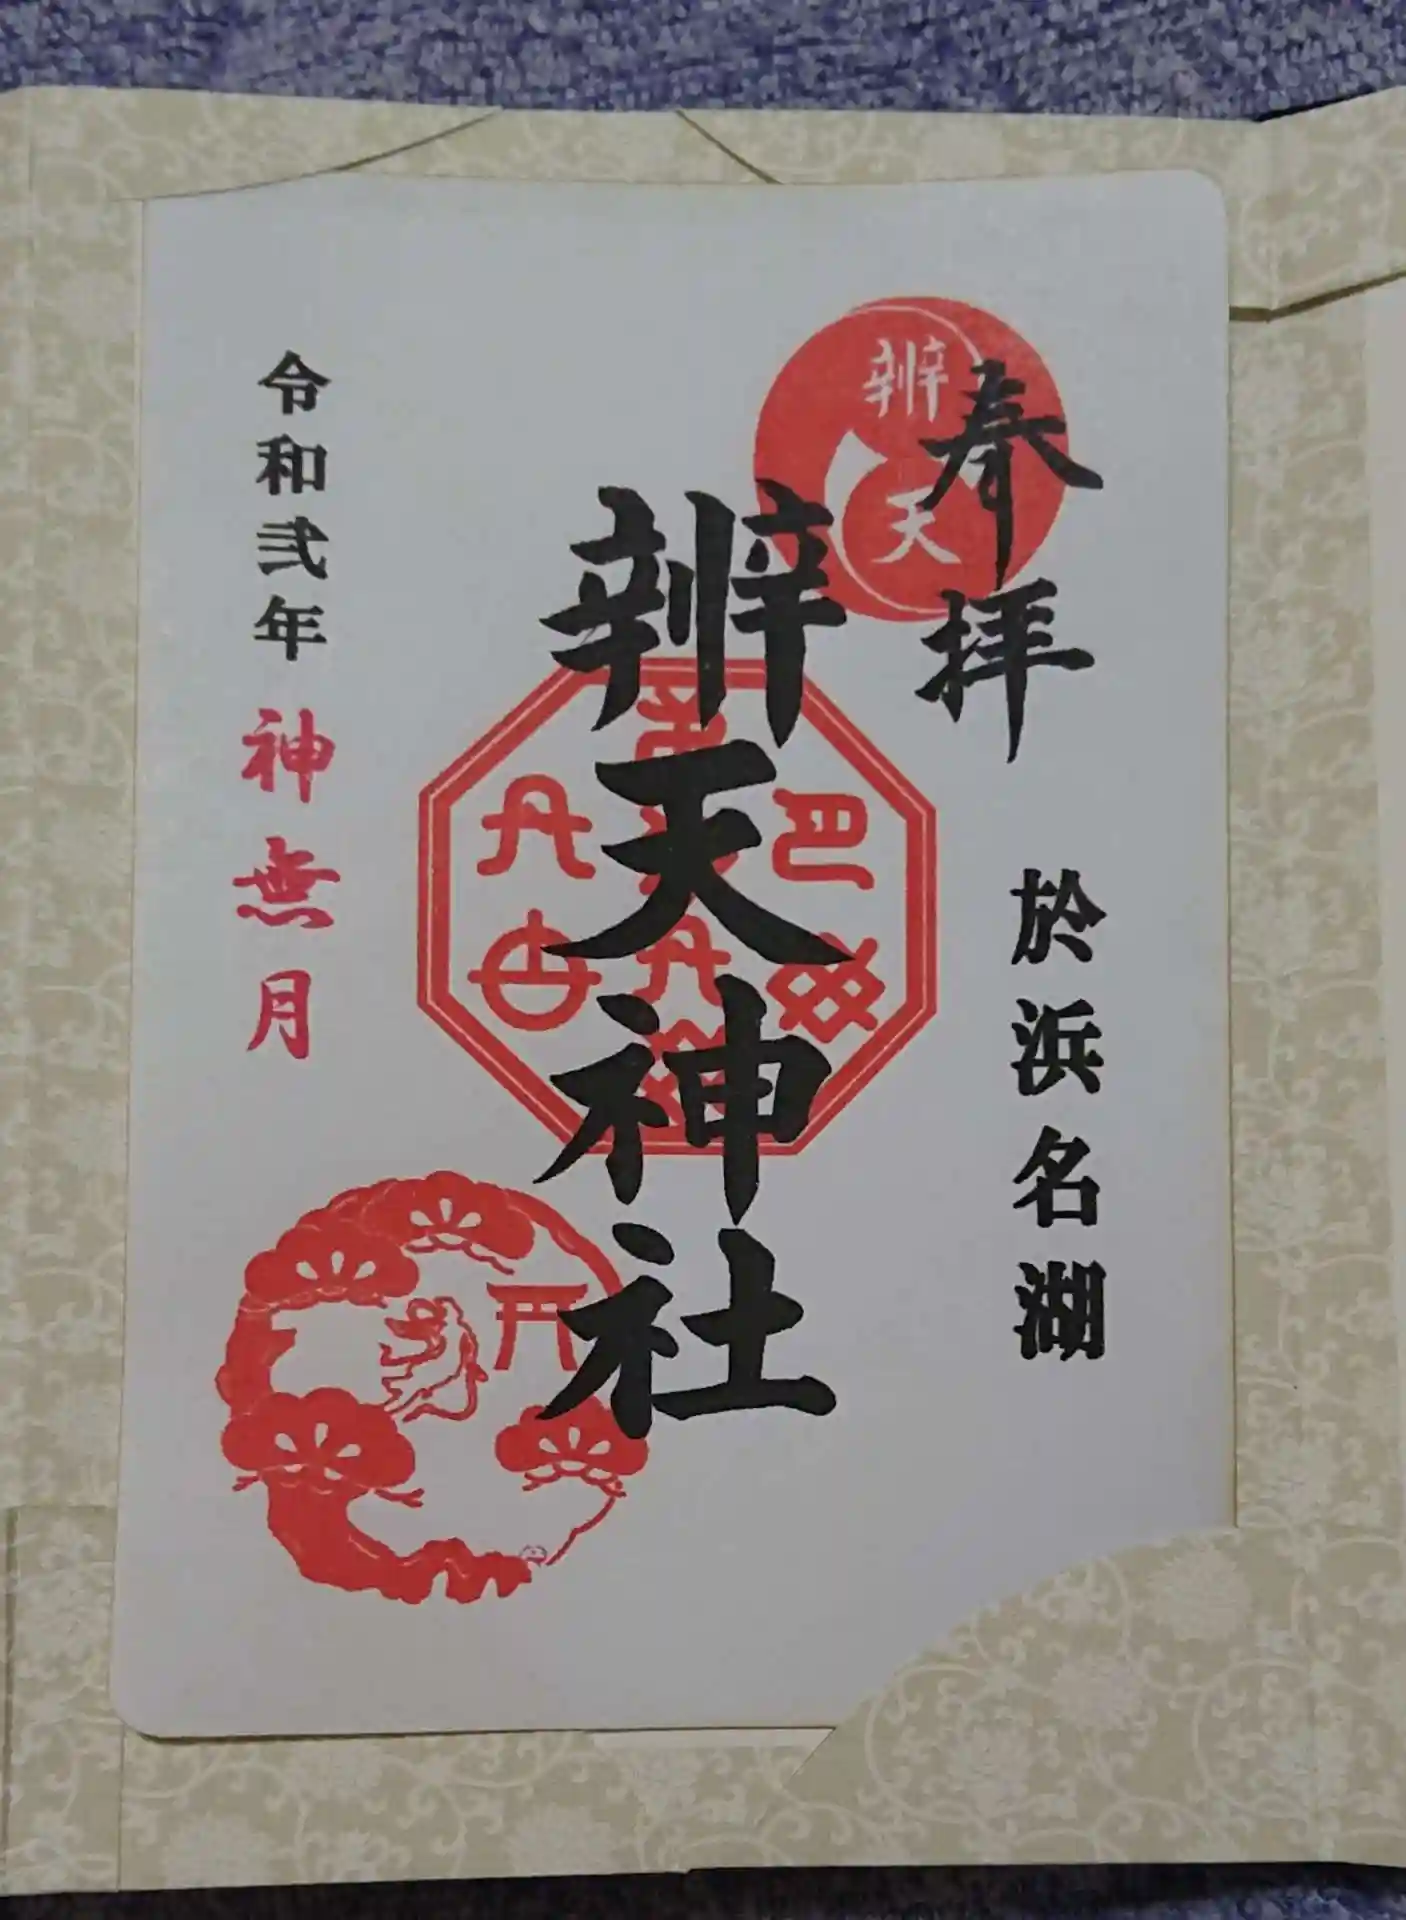 奉拝
於浜名湖
辨天
辨天神社
令和弐年神無月